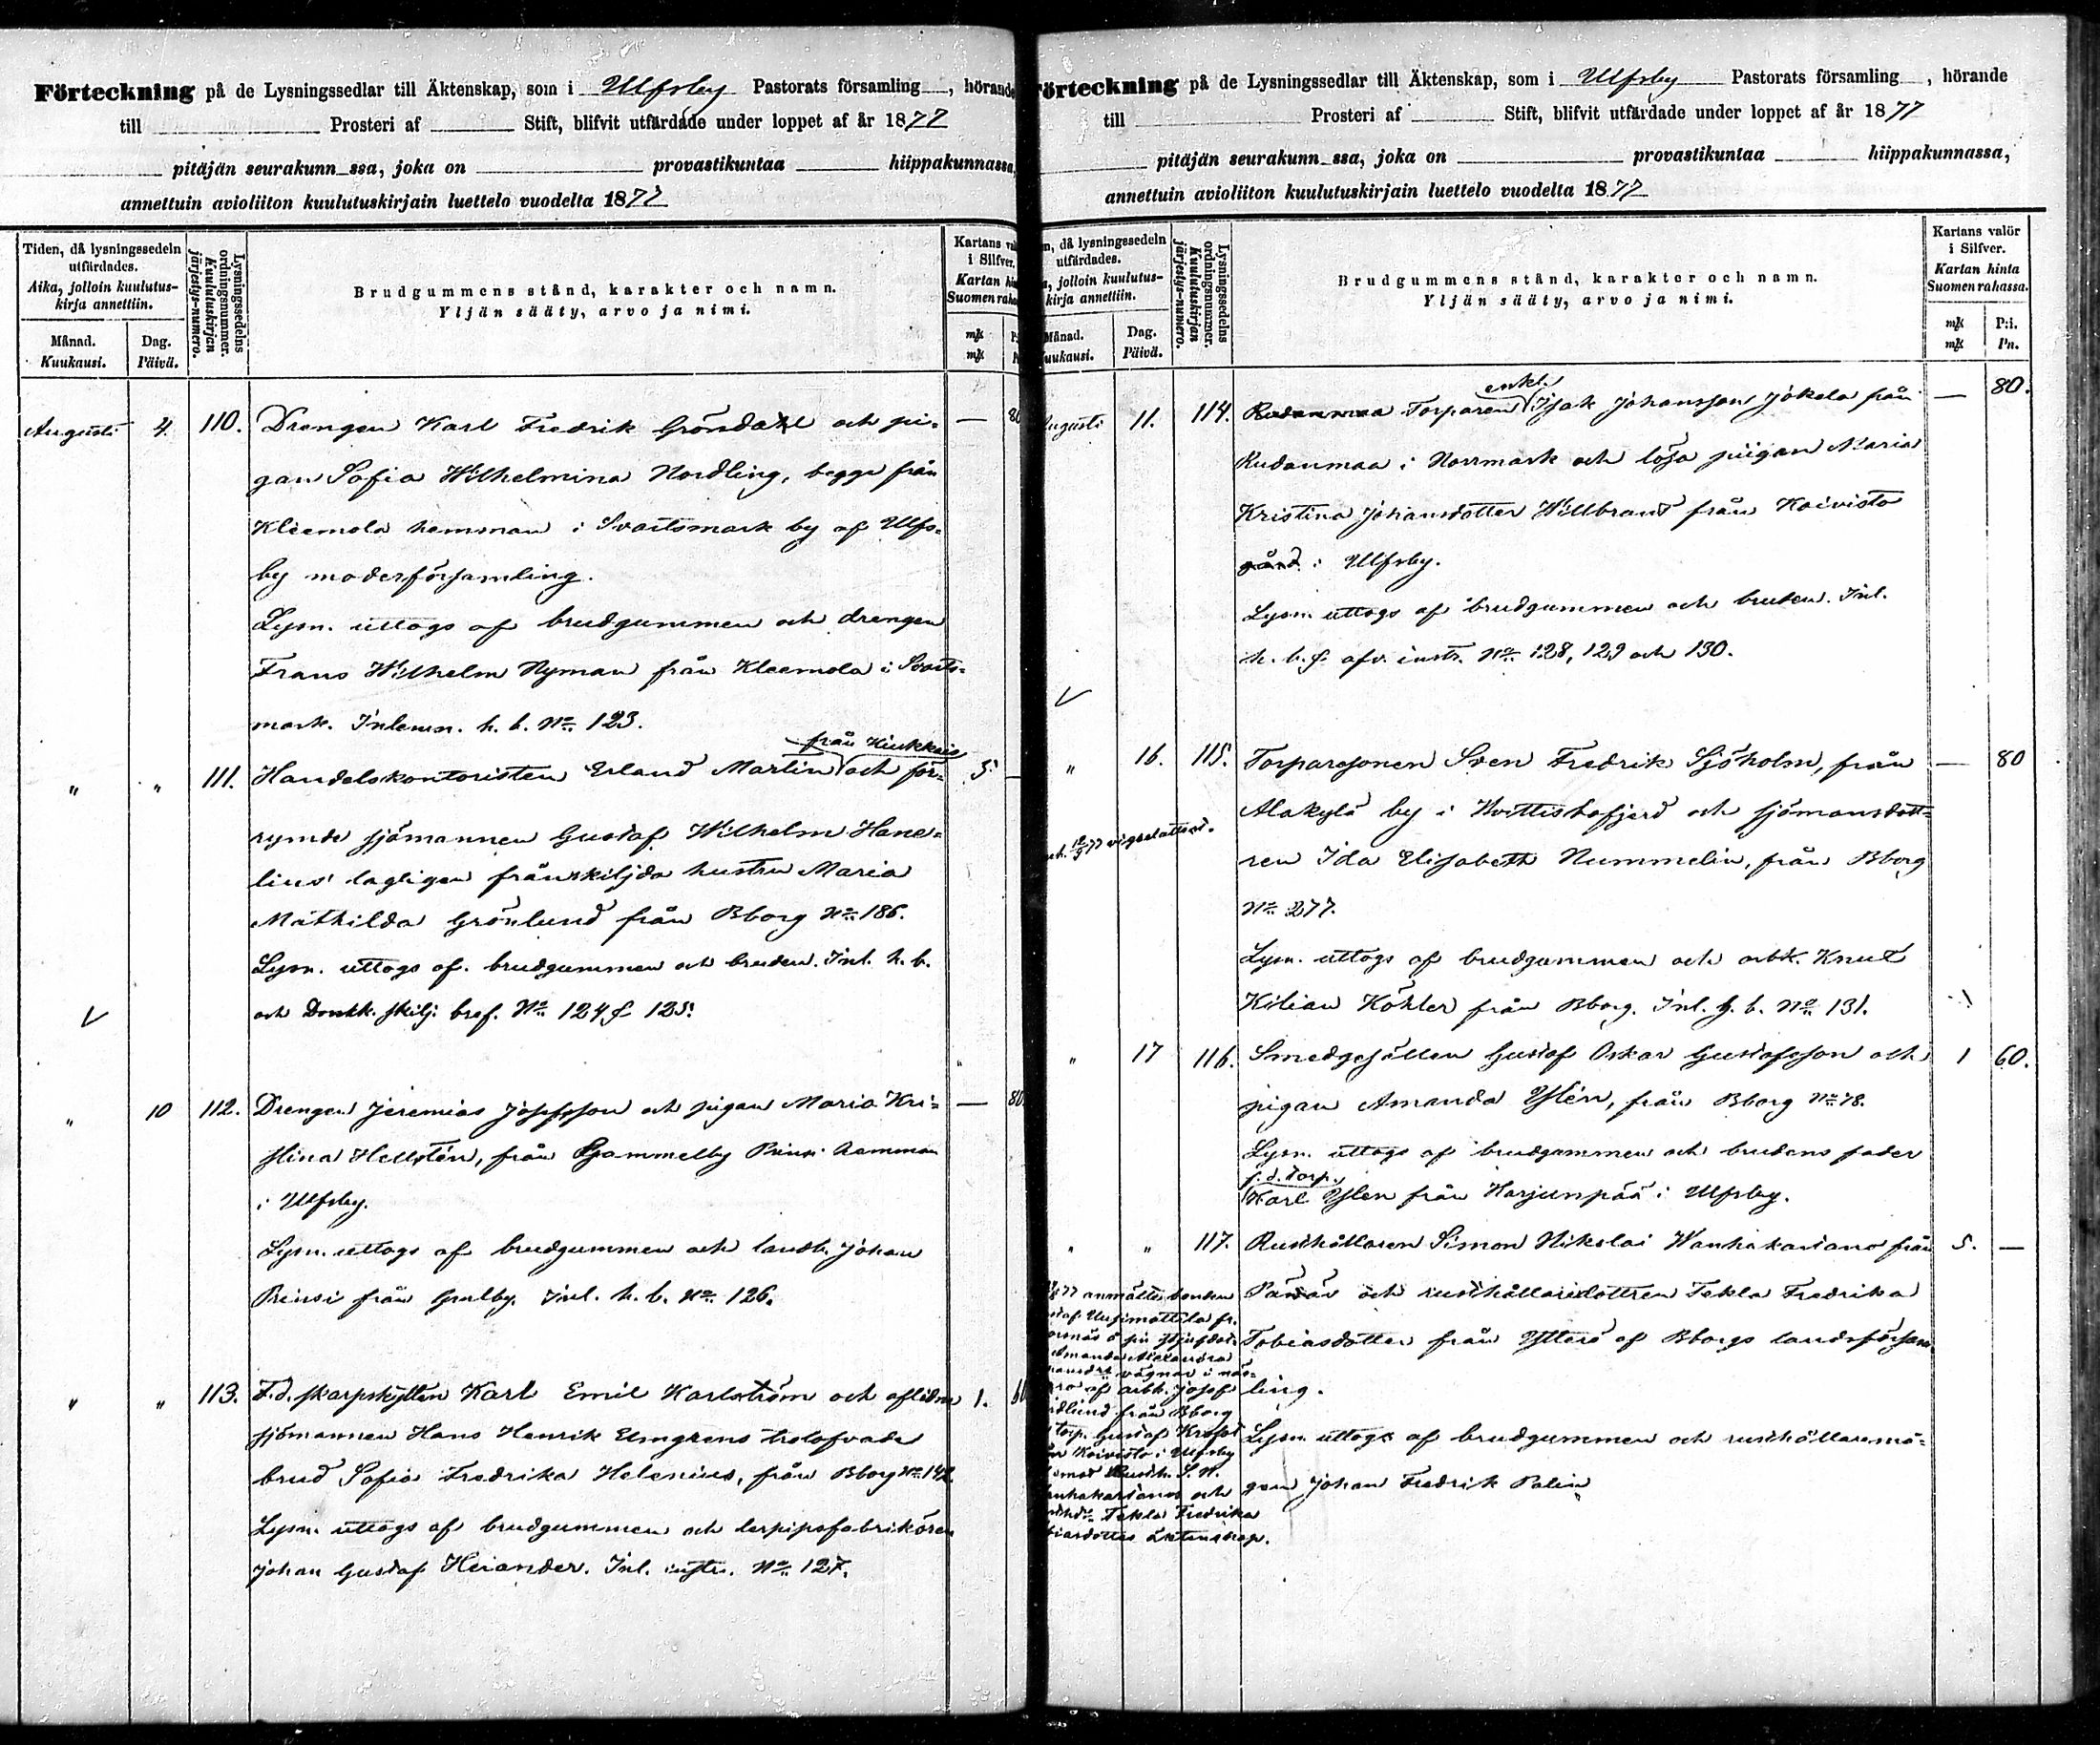 Förteckning på de Lysningssedlar till Äktenskap, som i Ulfsby Pastorats församling, hörande
till Prosteri af Stift, blifvit utfärdade under loppet af år 1877
pitäjän seurakunn_ssa, joka on provastikuntaa hiippakunnassa,
annettuin avioliiton kuulutuskirjain luettelo vuodelta 1877
Tiden, då lysningssedeln utfärdades.
Aika, jolloin kuulutuskirja annettiin.
Månad.
Kuukausi.
Dag.
Päivä.
Lysningssedelns ordningsnummer.
Kuulutuskirjan järjestys-numero.
Brudgummens stånd, karakter och namn.
Yljän sääty, arvo ja nimi.
Kartans
i Silfver.
Kartan
Suomen
mk
mk
Augusti 4. 110. Drengen Karl Fredrik Gröndahl och pi- — 80
gan Sofia Wilhelmina Nordling, begge från
Kleemola hemman i Svartsmark by af Ulfs-
by moderförsamling.
Lysn. uttogs af brudgummen och drengen
Frans Wilhelm Nyman från Kleemola i Svarts-
mark. Inlemn. h. b. No 123.
från Hiukkais
" " 111. Handelskontoristen Erland Martin och för- 5. —
rymde sjömannen Gustaf Wilhelm Hane-
lius' lagligen frånskiljda hustru Maria
Mathilda Grönlund från Bborg No 186.
Lysn. uttogs af. brudgummen och bruden. Inl. h. b.
och Domk. skilj. bref. No 124 & 125.
" 10 112. Drengen Jeremias Josefsson och pigan Maria Kri- — 80
stina Hellstén, från Gammelby Prinsi hemman
i Ulfsby.
Lysn. uttogs af brudgummen och landb. Johan
Prinsi från Gmlby. Inl. h. b. No 126.
" " 113. F.d. skarpskytten Karl Emil Karlström och aflidne 1. 60
sjömannen Hans Henrik Elmgrens trolofvade
brud Sofia Fredrika Helenius, från Bborg No 142
Lysn. uttogs af brudgummen och lerpipsfabrikören
Johan Gustaf Heiander. Inl. instr. No 127.
Förteckning på de Lysningssedlar till Äktenskap, som i Ulfsby Pastorats församling, hörande
till Prosteri af Stift, blifvit utfärdade under loppet af år 1877
pitäjän seurakunn_ssa, joka on provastikuntaa hiippakunnassa,
annettuin avioliiton kuulutuskirjain luettelo vuodelta 1877
då lysningssedeln utfärdades.
jolloin kuulutuskirja annettiin.
Månad.
Kuukausi.
Dag.
Päivä.
Lysningssedelns ordningsnummer.
Kuulutuskirjan järjestys-numero.
Brudgummens stånd, karakter och namn.
Yljän sääty, arvo ja nimi.
Kartans valör
i Silfver.
Kartan hinta
Suomen rahassa.
mk P:i.
mk Pn.
enkl.
Augusti 11. 114. Rudanmaa Torparen Isak Johansson Jokela från — 80.
Rudanmaa i Norrmark och lösa piigan Maria
Kristina Johansdotter Willbrand från Koivisto
gård i Ulfsby.
Lysn. uttogs af brudgummen och bruden. Inl.
h. b. & afv. instr. No 128, 129 och 130.
" 16. 115. Torparesonen Sven Fredrik Sjöholm, från — 80
Alakylä by i Hvittisbofjerd och sjömansdott-
vigselattest.
ren Ida Elisabeth Nummelin, från Bborg
No 277.
Lysn. uttogs af brudgummen och arbk. Knut
Kilian Köhler från Bborg. Inl. h. b. No 131.
" 17 116. Smedgesällen Gustaf Oskar Gustafsson och 1 60.
pigan Amanda Yslén, från Bborg No 78.
Lysn. uttogs af brudgummen och brudens fader
f.d. torp.
Karl Yslen från Harjunpää i Ulfsby.
" " 117. Rusthållaren Simon Nikolai Wanhakartano från 5. —
och rusthållaredottren Tekla Fredrika
Tobiasdotter från Ytterö af Bborgs landsförsam
ling.
Lysn. uttogs af brudgummen och rusthållaremå-
gen Johan Fredrik Palin
77 anmälte bonden
Uusimattila fr.
Amanda Alexandra
vägnar i när-
af arbk. Josef
från Bborg
torp. Gustaf
Koivisto i Ulfsby
emot Rusth. S. N.
Wanhakartanos och
Tekla Fredrika
Tobiasdotters äktenskap.